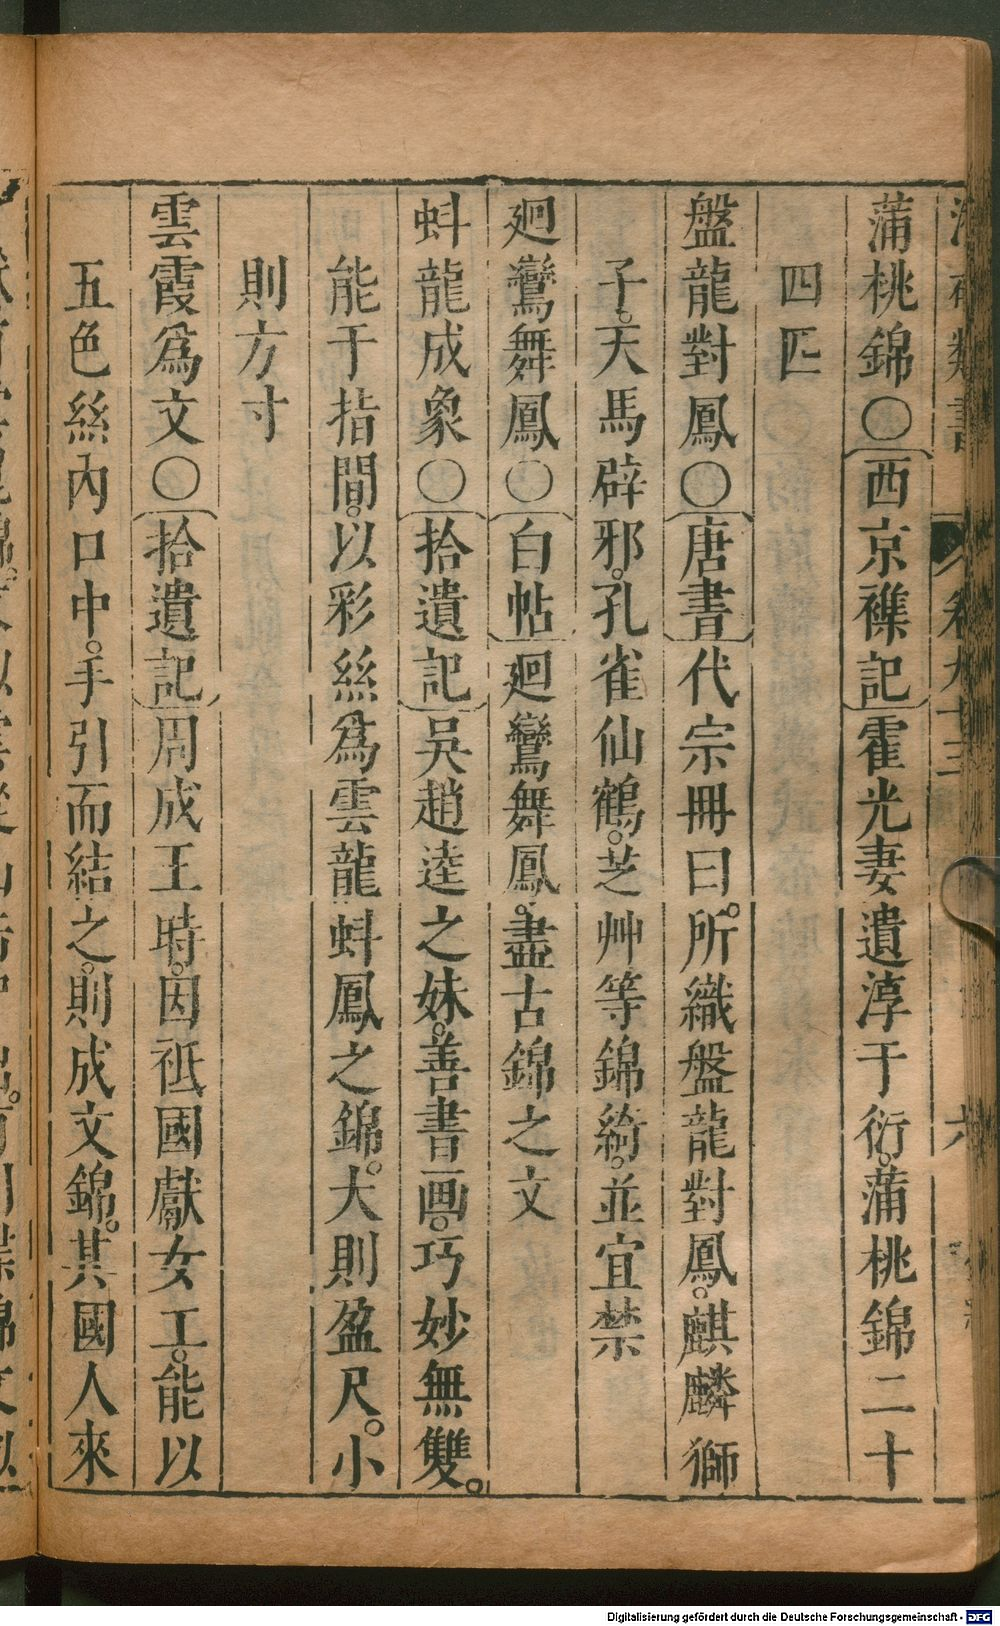 蒲桃錦○西京襍記霍光妻遺淳于衍。蒲桃錦二十
四匹
盤龍對鳳○唐書代宗冊曰。所織盤龍對鳳。麒麟獅
子。天馬辟邪。孔雀仙鶴。芝艸等錦綺。並宜禁
廻鸞舞鳳○白帖廻鸞舞鳳。盡古錦之文
蚪龍成象○拾遺記吳趙逵之妹。善書画。巧妙無雙。
能于指間。以彩絲爲雲龍蚪鳳之錦。大則盈尺。小
則方寸
雲霞爲文○拾遺記周成王時。因祗國獻女工。能以
五色絲內口中。手引而結之。則成文錦。其國人來
Digitalisierung gefördert durch die Deutsche Forschungsgemeinschaft - DFG